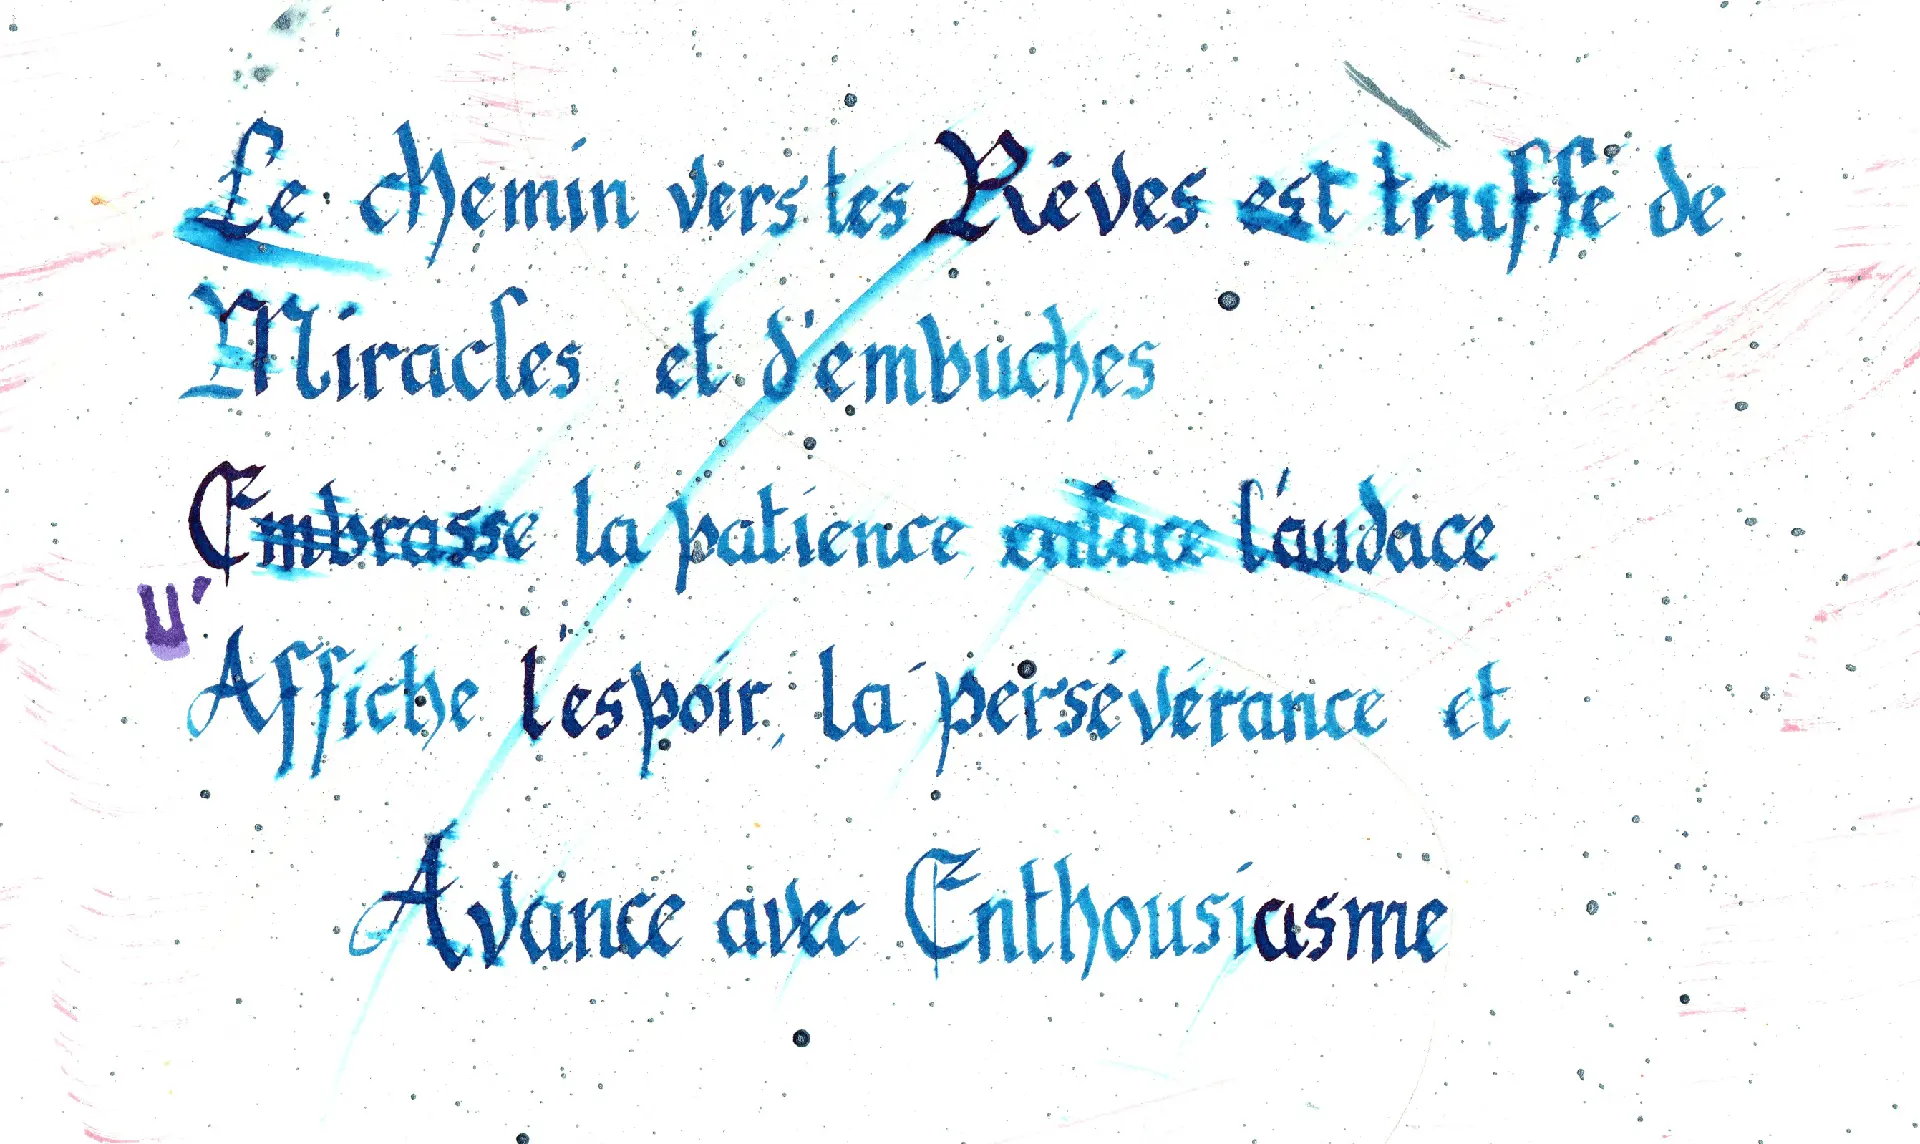 Le chemin vers les Rêves est truffé de
Miracles et d'embuches
Embrasse la patience enlace l'audace
U'
Affiche l'espoir, la persévérance et
Avance avec Enthousiasme